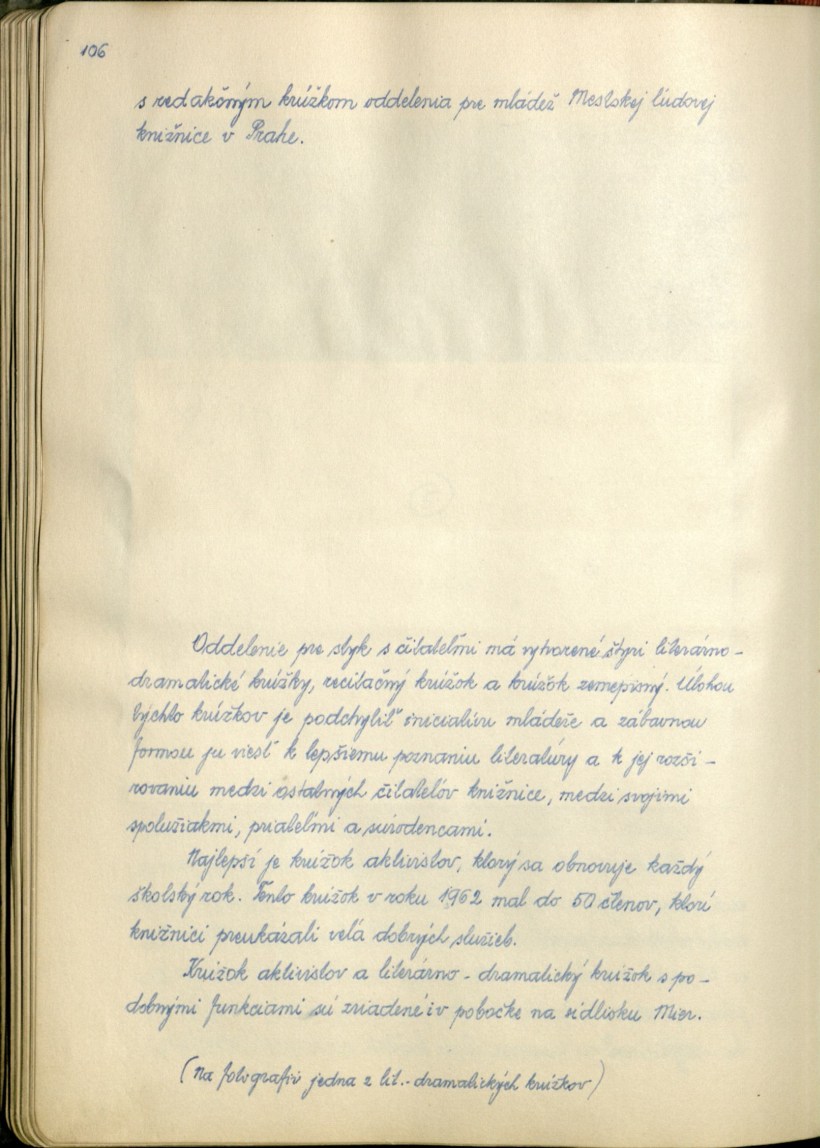 106
s redakčným krúžkom oddelenia pre mládež Mestskej ľúdovej
knižnice v Prahe.
Oddelenie pre styk s čitateľmi má vytvorené štyri literárno-
dramatické krúžky, recitačný krúžok a krúžok zemepisný. Úlohou
týchto krúžkov je podchytiť iniciatívu mládeže a zábavnou
formou ju viesť k lepšiemu poznaniu literatúry a k jej rozši-
rovaniu medzi ostatných čitateľov knižnice, medzi svojimi
spolužiakmi, priateľmi a súrodencami.
Najlepší je krúžok aktivistov, ktorý sa obnovuje každý
školský rok. Tento krúžok v roku 1962 mal do 50 členov, ktorí
knižnici preukázali veľa dobrých služieb.
Krúžok aktivistov a literárno-dramatický krúžok s po-
dobnými funkciami sú zriadené i v pobočke na sídlisku Mier.
(Na fotografii jedna z lit.-dramatických krúžkov)